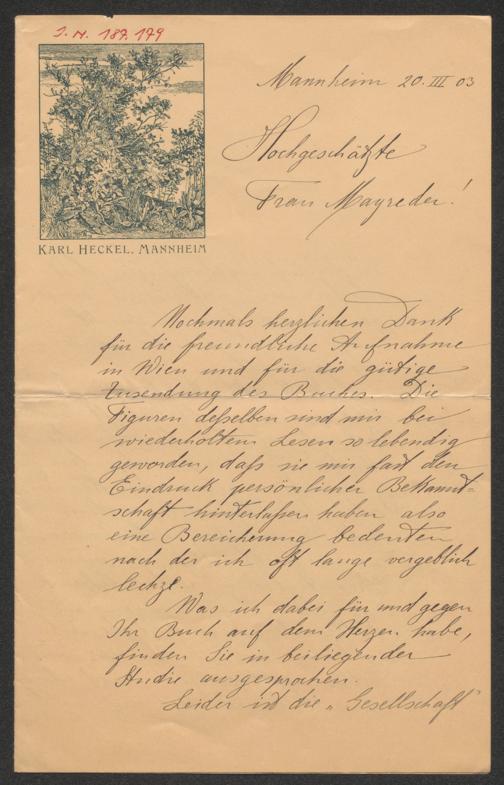 J. N. 187.179
KARL HECKEL, MANNHEIM
Mannheim 20. III 03
Hochgeschätzte
Frau Mayreder!
Nochmals herzlichen Dank
für die freundliche Aufnahme
in Wien und für die gütige
Zusendung des Buches. Die
Figuren desselben sind mir bei
wiederholtem Lesen so lebendig
geworden, daß sie mir fast den
Eindruck persönlicher Bekannt-
schaft hinterlaßen haben also
eine Bereicherung bedeuten
nach der ich oft lange vergeblich
lechze.
Was ich dabei für und gegen
Ihr Buch auf dem Herzen habe,
finden Sie in beiliegender
Studie ausgesprochen.
Leider ist die „Gesellschaft"